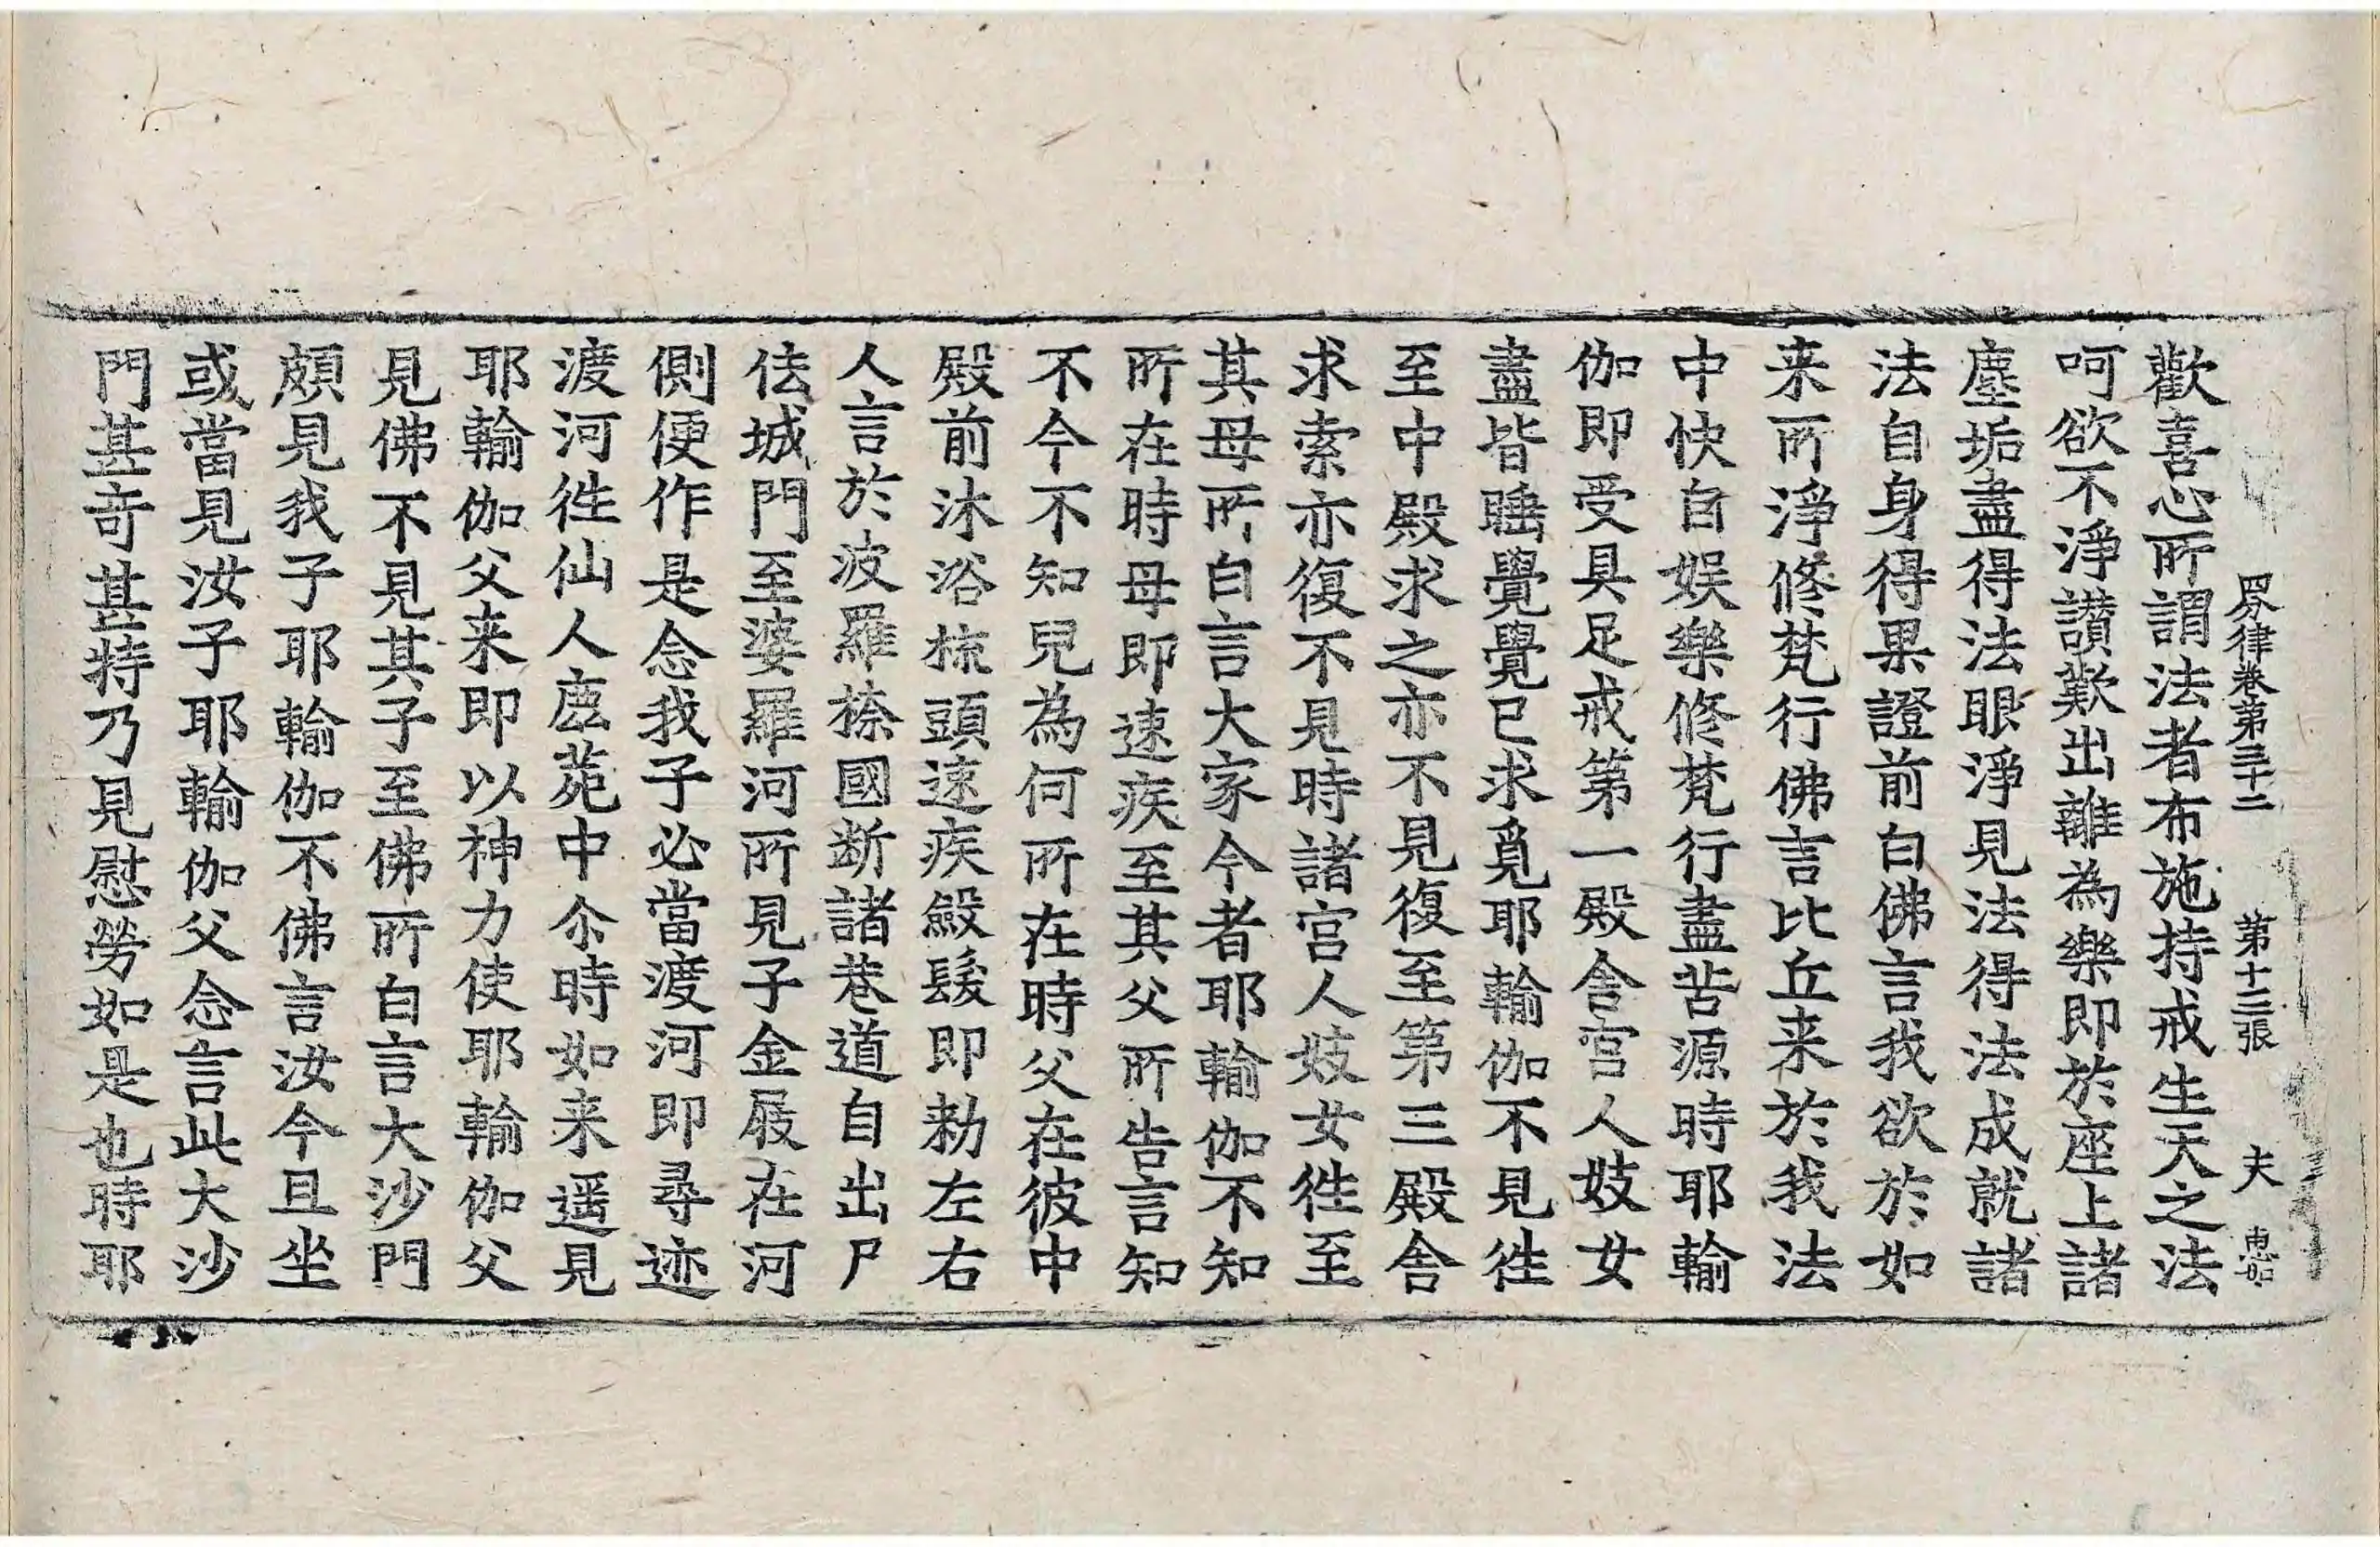 四分律卷第三十二 第十三張 夫
歡喜心所謂法者布施持戒生天之法
呵欲不淨讃歎出離為樂即於座上諸
塵垢盡得法眼淨見法得法成就諸
法自身得果證前白佛言我欲於如
来所淨修梵行佛言比丘来於我法
中快自娱樂修梵行盡苦源時耶輸
伽即受具足戒第一殿舎宫人妓女
盡皆睡覺覺已求覓耶輸伽不見徃
至中殿求之亦不見復至第三殿舎
求索亦復不見時諸宫人妓女徃至
其母所白言大家今者耶輸伽不知
所在時母即速疾至其父所告言知
不今不知兒為何所在時父在彼中
殿前沐浴梳頭速疾斂髮即勑左右
人言於波羅㮈國断諸巷道自出尸
佉城門至婆羅河所見子金屐在河
側便作是念我子必當渡河即尋迹
渡河徃仙人鹿苑中尒時如来遥見
耶輸伽父来即以神力使耶輸伽父
見佛不見其子至佛所白言大沙門
頗見我子耶輸伽不佛言汝今且坐
或當見汝子耶輸伽父念言此大沙
門甚奇甚特乃見慰勞如是也時耶